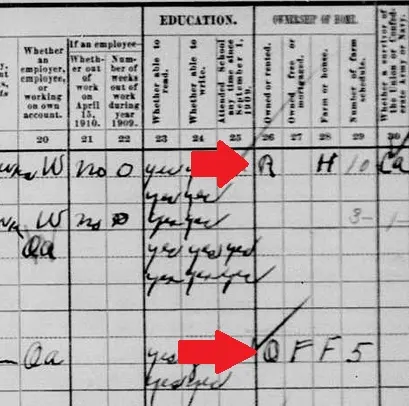 EDUCATION. OWNERSHIP OF HOME.
Whether an employer, employee, or working on own account.
If an employee—
Whether out of work on April 15, 1910.
Number of weeks out of work during year 1909.
Whether able to read.
Whether able to write.
Attended School any time since September 1, 1909.
Owned or rented.
Owned free or mortgaged.
Farm or house.
Number of farm schedule.
Whether a survivor of the Union or Confederate Army or Navy.
20 21 22 23 24 25 26 27 28 29 30
W no 0 yes R H 10 Ca
yes yes
W no 0 yes yes 3- 1-
Oa yes yes yes
yes yes yes
Oa yes O F F 5
yes yes